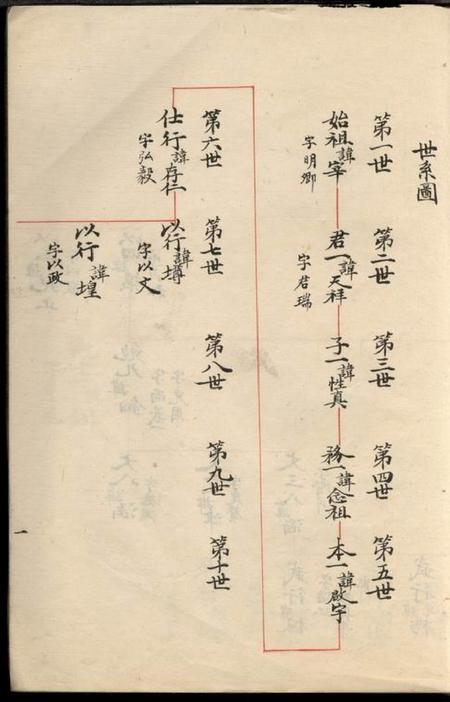 世系圖
第一世
始祖諱宰
字明卿
第二世
君一諱天祥
字君瑞
第三世
子一諱性真
第四世
務一諱念祖
第五世
本一諱啟宇
第六世
仕行諱存仁
字弘毅
第七世
以行諱墫
字以文
以行諱堭
字以政
第八世
第九世
第十世
一